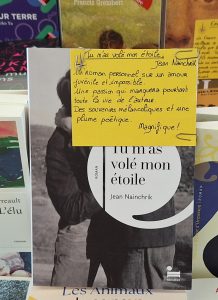 Francis Grembert
UR TERRE
Tu m'as volé mon étoile
Jean Nainchrik
Un roman personnel sur un amour
juvénile et impossible.
Une passion qui marquera pourtant
toute la vie de l'auteur.
Des souvenirs mélancoliques et une
plume poétique.
Magnifique!
Tu m'as
volé mon
étoile
Jean Nainchrik
ROMAN
L'élu
Les Animaux